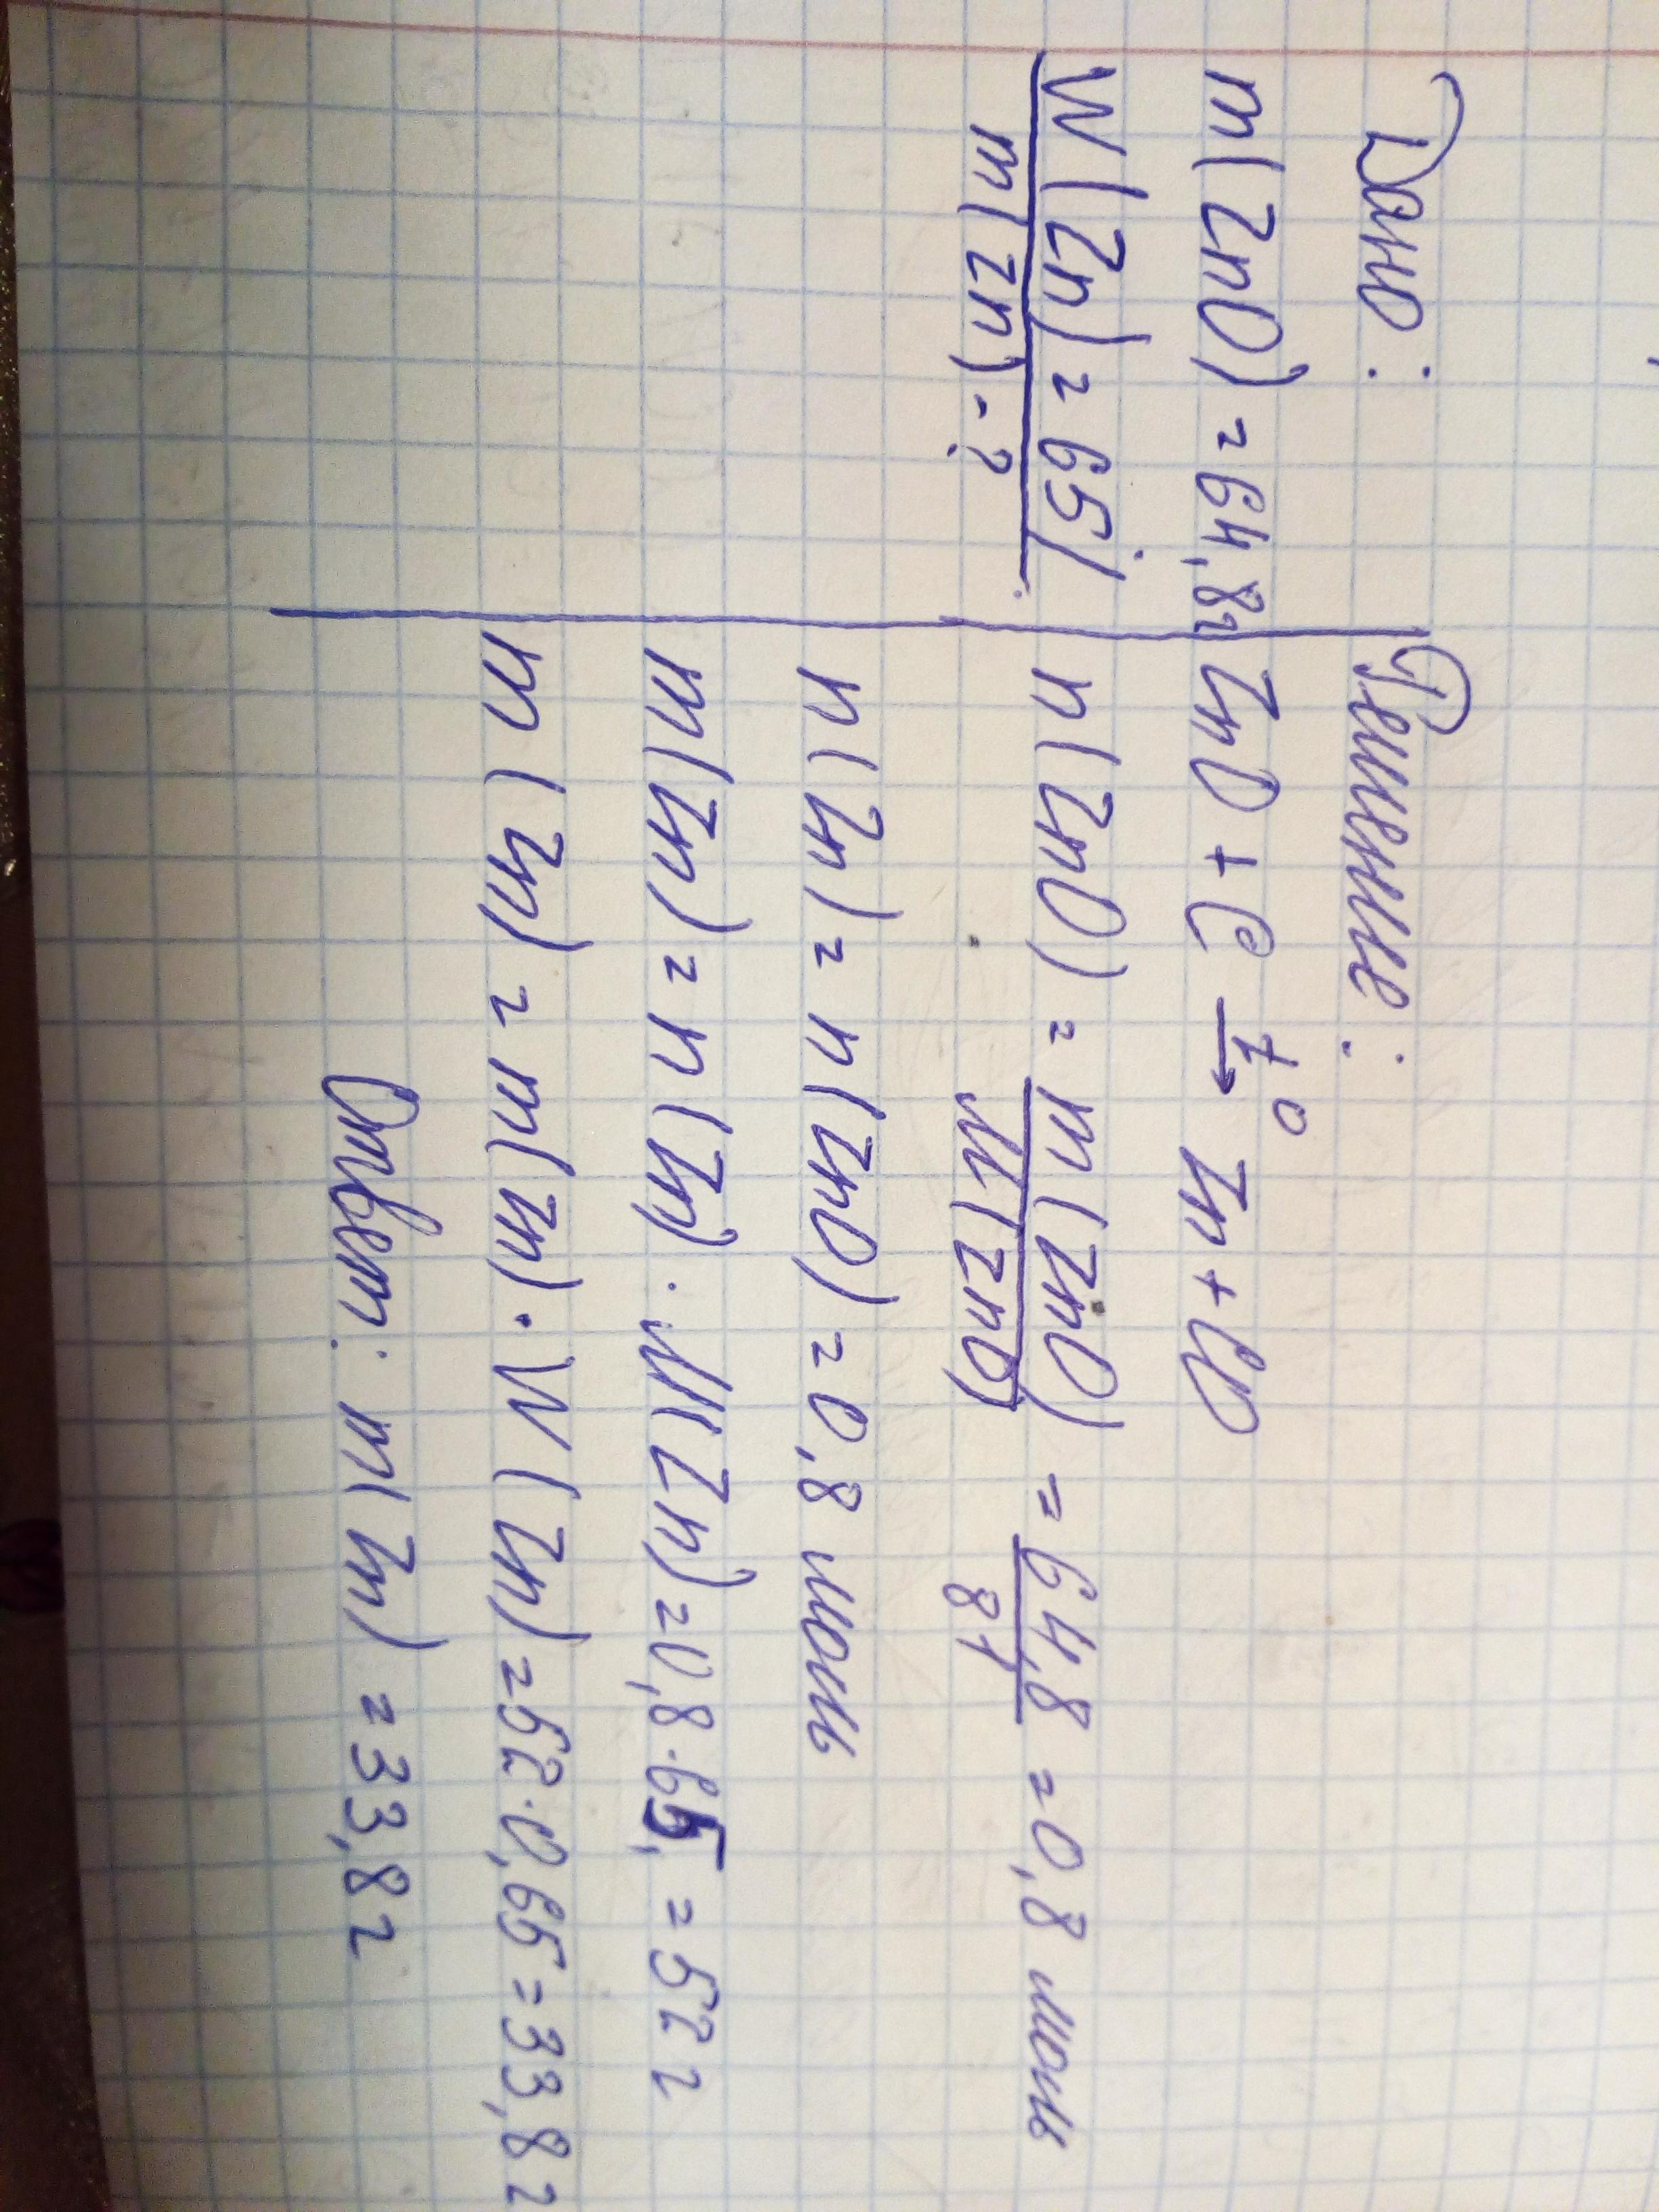 Дано:
m(ZnO) = 64,8г
W(Zn) = 65%
m(Zn) - ?
Решение:
ZnO + C t° → Zn + CO
n(ZnO) = m(ZnO) / M(ZnO) = 64,8 / 81 = 0,8 моль
n(Zn) = n(ZnO) = 0,8 моль
m(Zn) = n(Zn) · M(Zn) = 0,8 · 65 = 52 г
m(Zn) = m(Zn) · W(Zn) = 52 · 0,65 = 33,8 г
Ответ: m(Zn) = 33,8 г